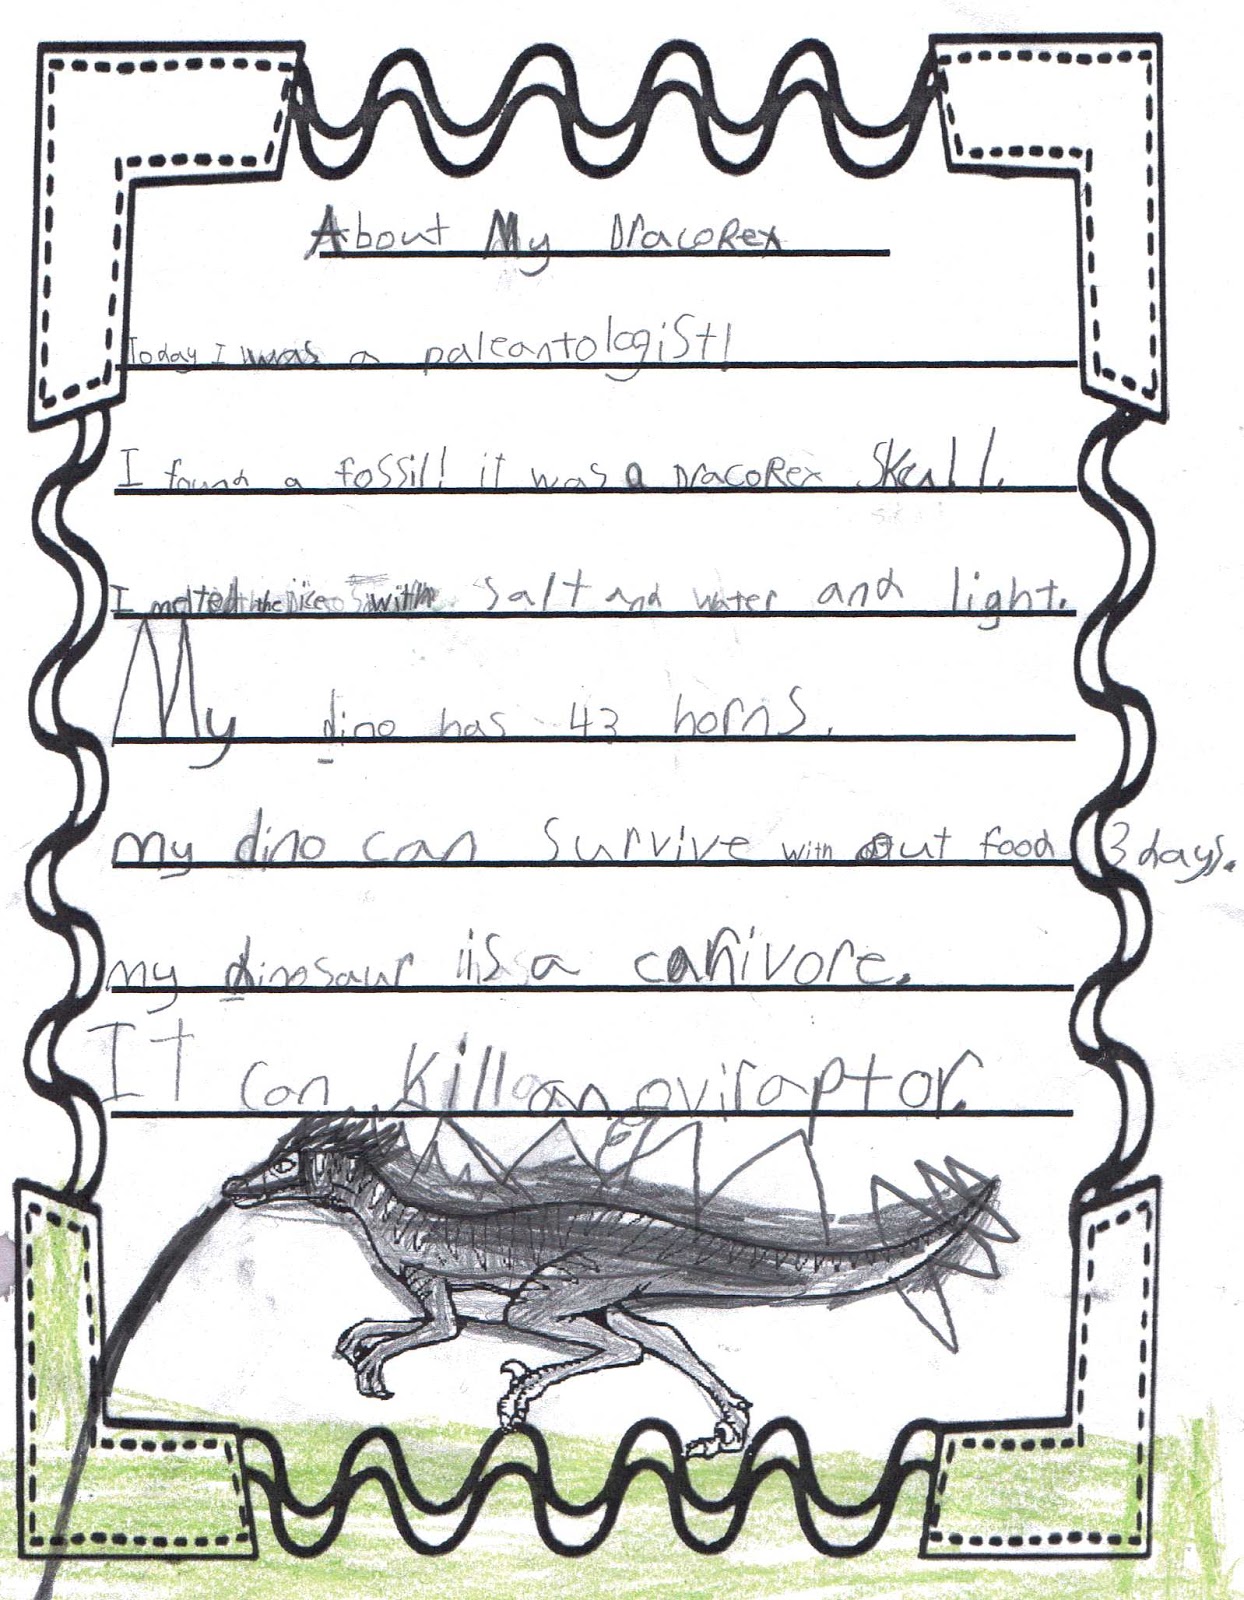 About My DracoRex
Today I was a paleantologist!
I found a fossil! it was a DracoRex Skull.
I melted the ice with salt and water and light.
My dino has 43 horns.
my dino can survive with out food 3 days.
my dinosaur is a carnivore.
IT can kill an oviraptor.